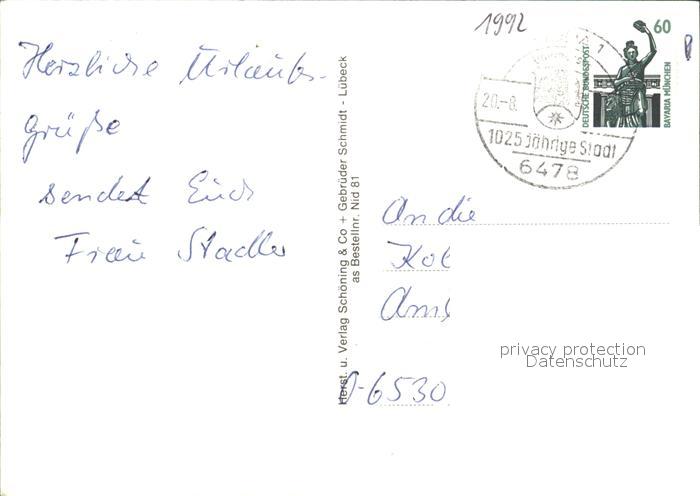 Herzliche Urlaubs-
grüße
sendet Euch
Frau Stadler
Herst. u. Verlag Schöning & Co + Gebrüder Schmidt - Lübeck
as Bestellnr. Nid 81
1992
60
DEUTSCHE BUNDESPOST
BAVARIA MÜNCHEN
20.-8.
1025 jährige Stadt
6478
1
An die
Kol
Ams
privacy protection
Datenschutz
O-6530